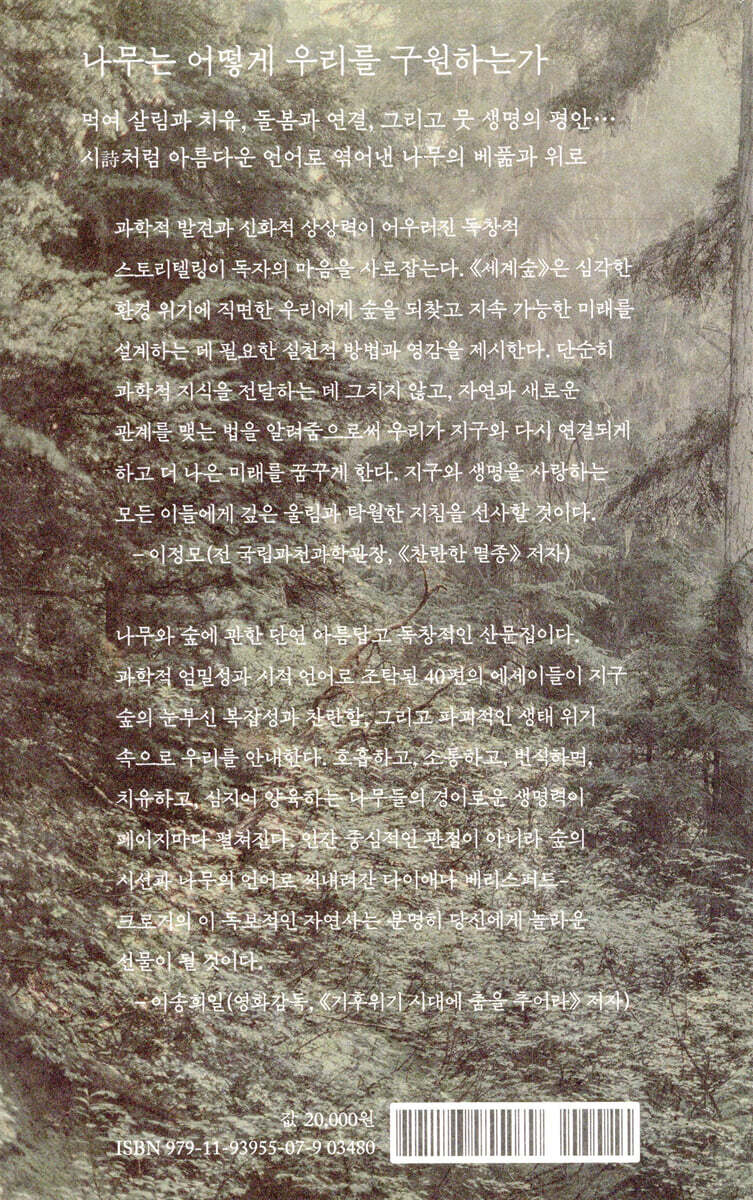 나무는 어떻게 우리를 구원하는가
먹여 살림과 치유, 돌봄과 연결, 그리고 뭇 생명의 평안…
시詩처럼 아름다운 언어로 엮어낸 나무의 베풂과 위로
과학적 발견과 신화적 상상력이 어우러진 독창적
스토리텔링이 독자의 마음을 사로잡는다. 《세계숲》은 심각한
환경 위기에 직면한 우리에게 숲을 되찾고 지속 가능한 미래를
설계하는 데 필요한 실천적 방법과 영감을 제시한다. 단순히
과학적 지식을 전달하는 데 그치지 않고, 자연과 새로운
관계를 맺는 법을 알려줌으로써 우리가 지구와 다시 연결되게
하고 더 나은 미래를 꿈꾸게 한다. 지구와 생명을 사랑하는
모든 이들에게 깊은 울림과 탁월한 지침을 선사할 것이다.
– 이정모(전 국립과천과학관장, 《찬란한 멸종》 저자)
나무와 숲에 관한 단연 아름답고 독창적인 산문집이다.
과학적 엄밀성과 시적 언어로 조탁된 40편의 에세이들이 지구
숲의 눈부신 복잡성과 찬란함, 그리고 파괴적인 생태 위기
속으로 우리를 안내한다. 호흡하고, 소통하고, 번식하며,
치유하고, 심지어 양육하는 나무들의 경이로운 생명력이
페이지마다 펼쳐진다. 인간 중심적인 관점이 아니라 숲의
시선과 나무의 언어로 써내려간 다이애나 베리스퍼드–
크로거의 이 독보적인 자연사는 분명히 당신에게 놀라운
선물이 될 것이다.
– 이송희일(영화감독, 《기후위기 시대에 춤을 추어라》 저자)
값 20,000원
ISBN 979-11-93955-07-9 03480